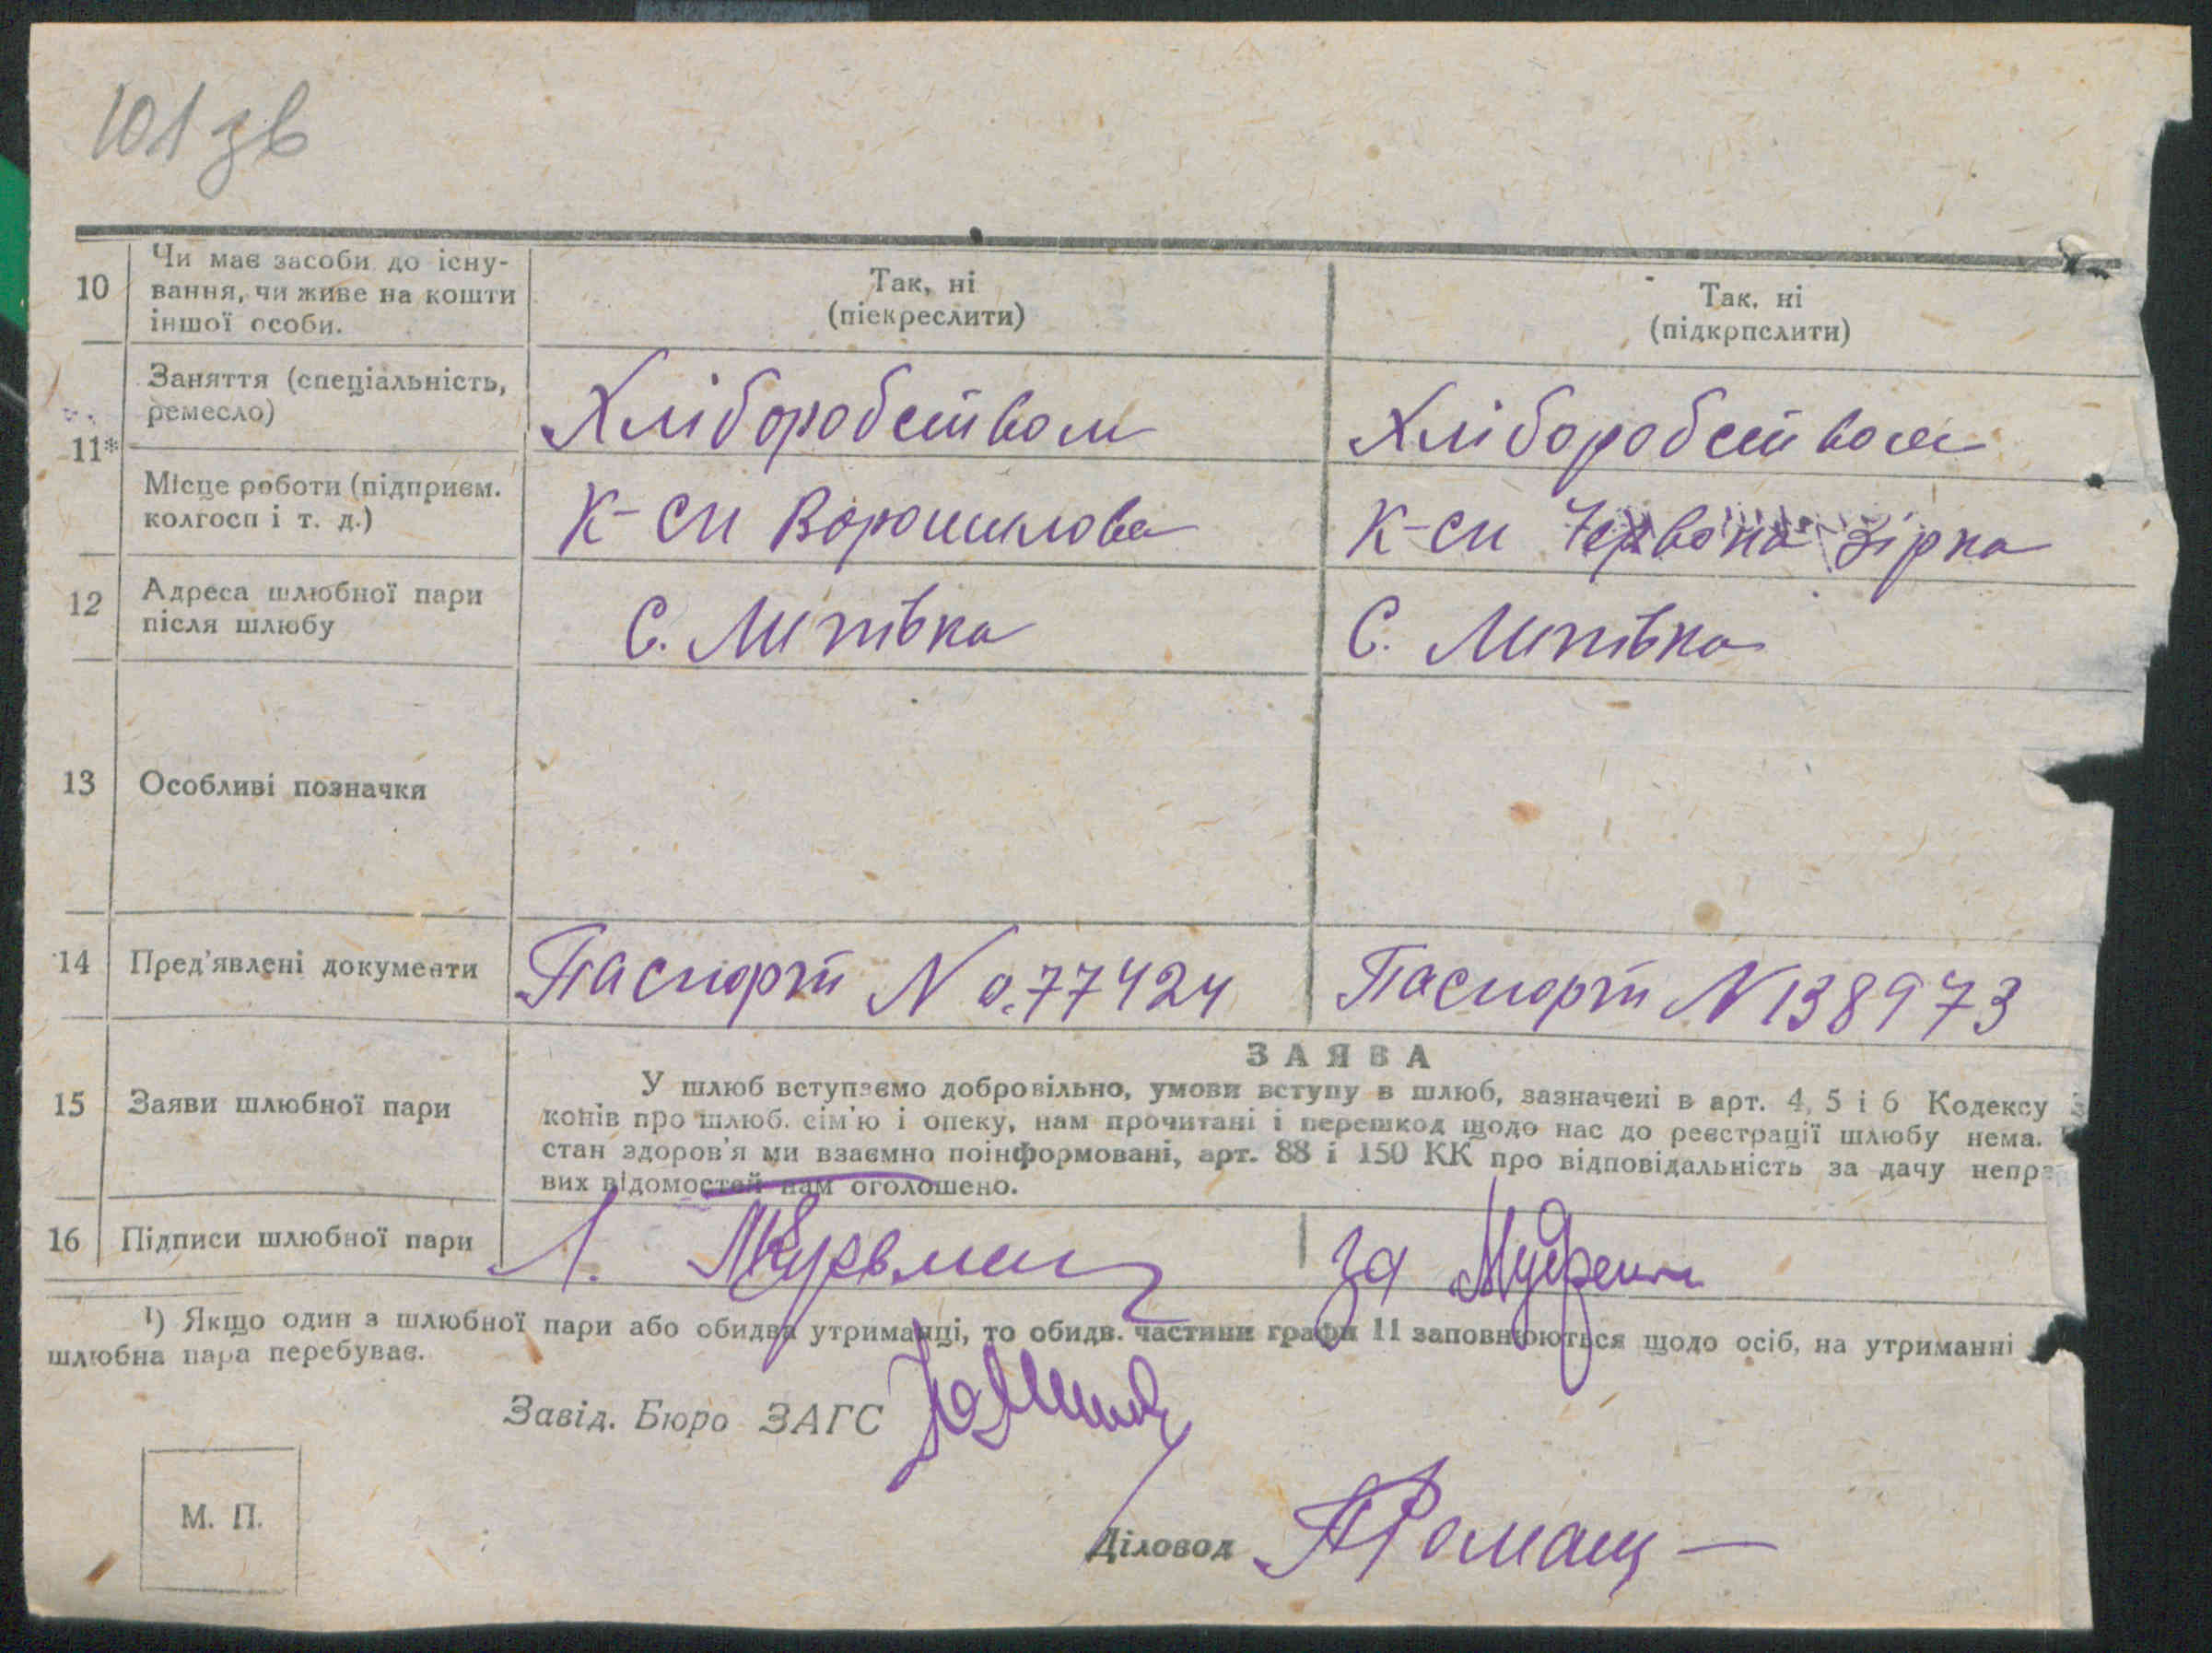 101 зв
10
Чи має засоби до існу-
вання, чи живе на кошти
іншої особи.
Так, ні
(піекреслити)
Так, ні
(підкрпслити)
11*
Заняття (спеціальність,
ремесло)
Хліборобством
Хліборобством
Місце роботи (підприєм.
колгосп і т. д.)
К-сп Ворошилова
К-сп Червона зірка
12
Адреса шлюбної пари
після шлюбу
С. Липівка
С. Липівка
13
Особливі позначки
14
Пред'явлені документи
Паспорт N 0.77424
Паспорт N 138973
15
Заяви шлюбної пари
ЗАЯВА
У шлюб вступаємо добровільно, умови вступу в шлюб, зазначені в арт. 4, 5 і 6 Кодексу
конів про шлюб. сім'ю і опеку, нам прочитані і перешкод щодо нас до реєстрації шлюбу нема.
стан здоров'я ми взаємно поінформовані, арт. 88 і 150 КК про відповідальність за дачу непра
вих відомостей нам оголошено.
16
Підписи шлюбної пари
Л.
за
¹) Якщо один з шлюбної пари або обидва утриманці, то обидв. частини графи 11 заповнюються щодо осіб, на утриманні
шлюбна пара перебуває.
Завід. Бюро ЗАГС
М. П.
Діловод